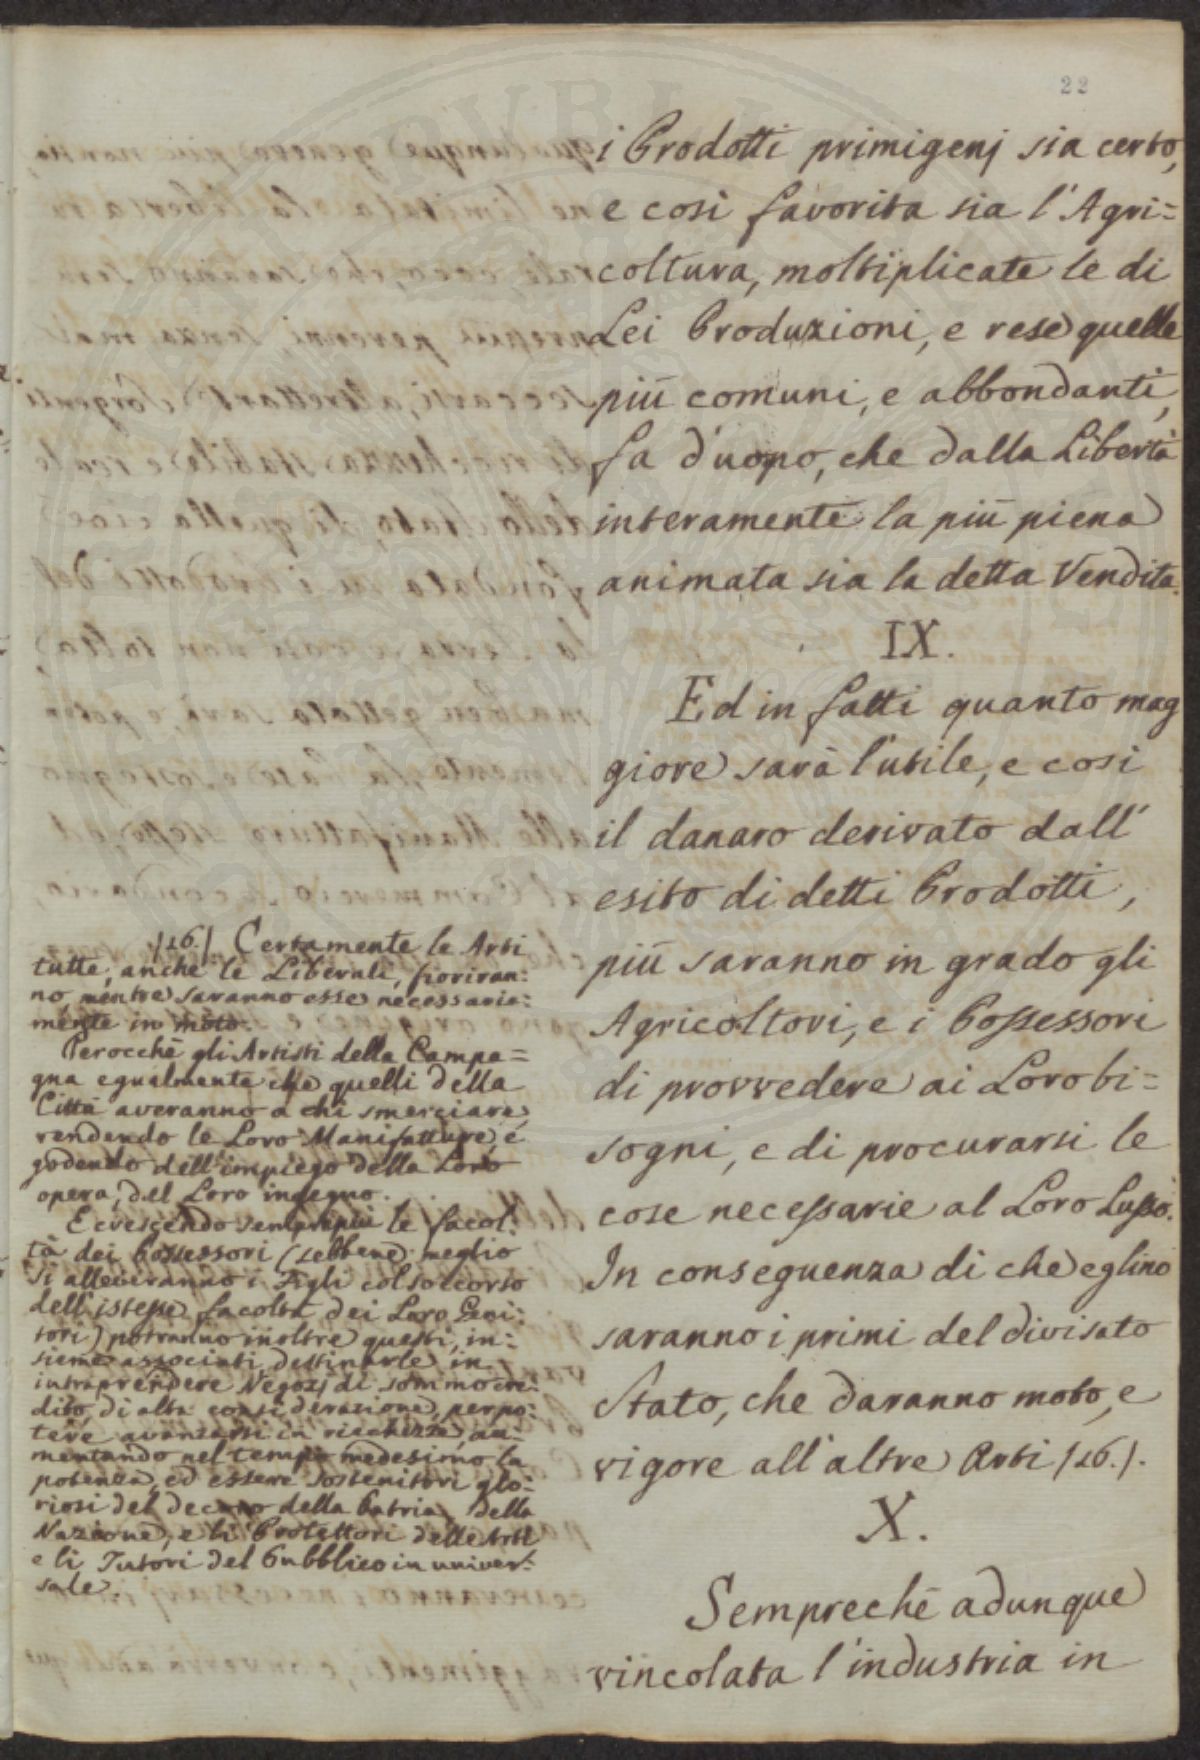 22
i Prodotti primigenj sia certo,
e così favorita sia l'Agri=
coltura, moltiplicate le di
Lei Produzioni, e rese quelle
più comuni, e abbondanti,
fa d'uopo, che dalla Libertà
interamente la più piena
animata sia la detta Vendita.
IX.
Ed in fatti quanto mag
giore sarà l'utile, e così
il danaro derivato dall'
esito di detti Prodotti,
più saranno in grado gli
Agricoltori, e i Possessori
di provvedere ai Loro bi=
sogni, e di procurarsi le
cose necessarie al Loro Lusso.
In conseguenza di che eglino
saranno i primi del divisato
Stato, che daranno moto, e
vigore all'altre Arti (16.).
X.
Sempreché adunque
vincolata l'industria in
(16.). Certamente le Arti
tutte, anche le Liberali, fioriran:
no, mentre saranno esse necessaria:
mente in moto.
Perocché gli Artisti della Campa=
gna egualmente che quelli della
Città averanno a chi smerciare,
vendendo le Loro Manifatture, e
godendo dell'impiego della Loro
opera, del Loro ingegno.
E crescendo sempre più le facol:
tà dei Possessori (sebbene meglio
si alleveranno i Figli col soccorso
dell'istesse facoltà dei Loro Geni:
tori) potranno inoltre questi, in:
sieme associati, destinarle in
intraprendere Negozj di sommo cre:
dito, di alta considerazione, per po:
tere avanzarsi in ricchezze, au=
mentando nel tempo medesimo la
potenza, ed essere sostenitori glo:
riosi del decoro della Patria, della
Nazione, e li Protettori delle Arti
e li Tutori del Pubblico in univer:
sale.